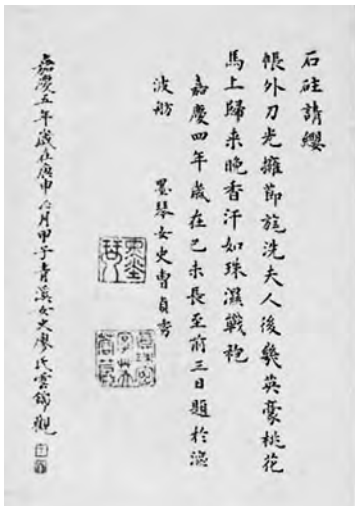 石砫請纓
帳外刀光擁節旄洗夫人後幾英豪桃花
馬上歸来晚香汗如珠濕戰袍
嘉慶四年歲在己未長至前三日題於漚
波舫 墨琴女史曹貞秀
嘉慶五年歲在庚申六月甲子青溪女史廖氏雲錦觀